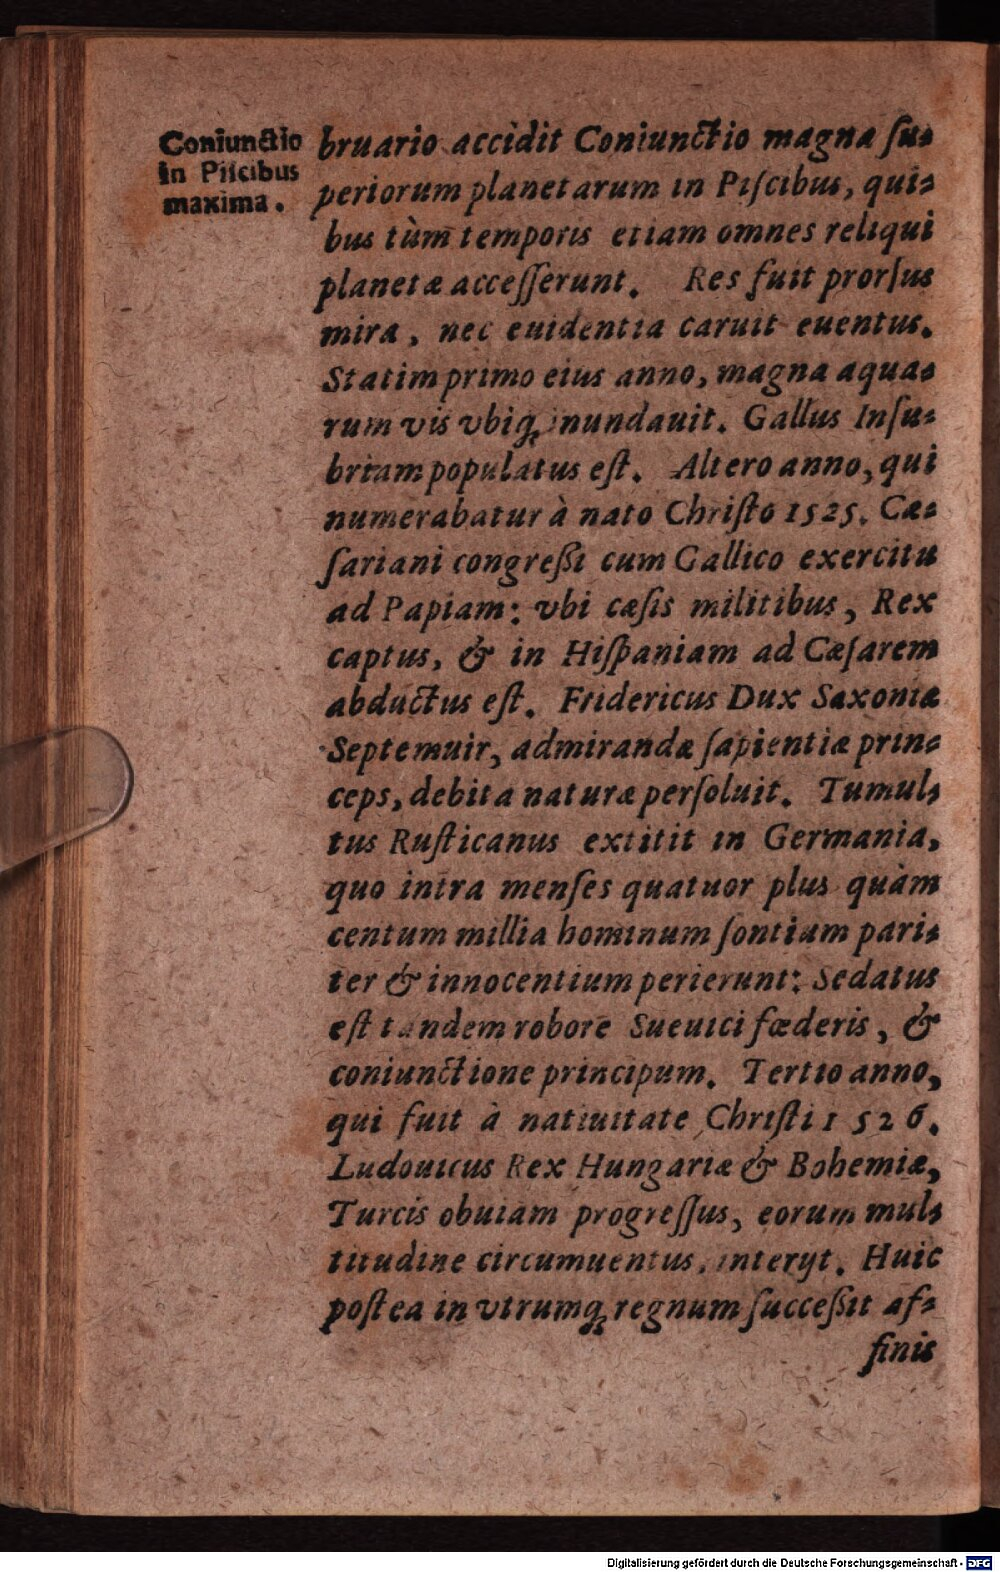 Coniunctio
in Piſcibus
maxima.
bruario accidit Coniunctio magna ſu-
periorum planetarum in Piſcibus, qui-
bus tùm temporis etiam omnes reliqui
planetæ acceſſerunt. Res fuit prorſus
mira, nec euidentia caruit euentus.
Statim primo eius anno, magna aqua-
rum vis vbiq; inundauit. Gallus Inſu-
briam populatus eſt. Altero anno, qui
numerabatur à nato Chriſto 1525. Cæ-
ſariani congreßi cum Gallico exercitu
ad Papiam: vbi cæſis militibus, Rex
captus, & in Hiſpaniam ad Cæſarem
abductus eſt. Fridericus Dux Saxoniæ
Septemuir, admirandæ ſapientiæ prin-
ceps, debita naturæ perſoluit. Tumul-
tus Ruſticanus extitit in Germania,
quo intra menſes quatuor plus quàm
centum millia hominum ſontium pari-
ter & innocentium perierunt: Sedatus
eſt tandem robore Sueuici fœderis, &
coniunctione principum. Tertio anno,
qui fuit à natiuitate Chriſti 1526.
Ludouicus Rex Hungariæ & Bohemiæ,
Turcis obuiam progreſſus, eorum mul-
titudine circumuentus, interijt. Huic
poſtea in vtrumq; regnum ſucceßit af-
finis
Digitalisierung gefördert durch die Deutsche Forschungsgemeinschaft - DFG